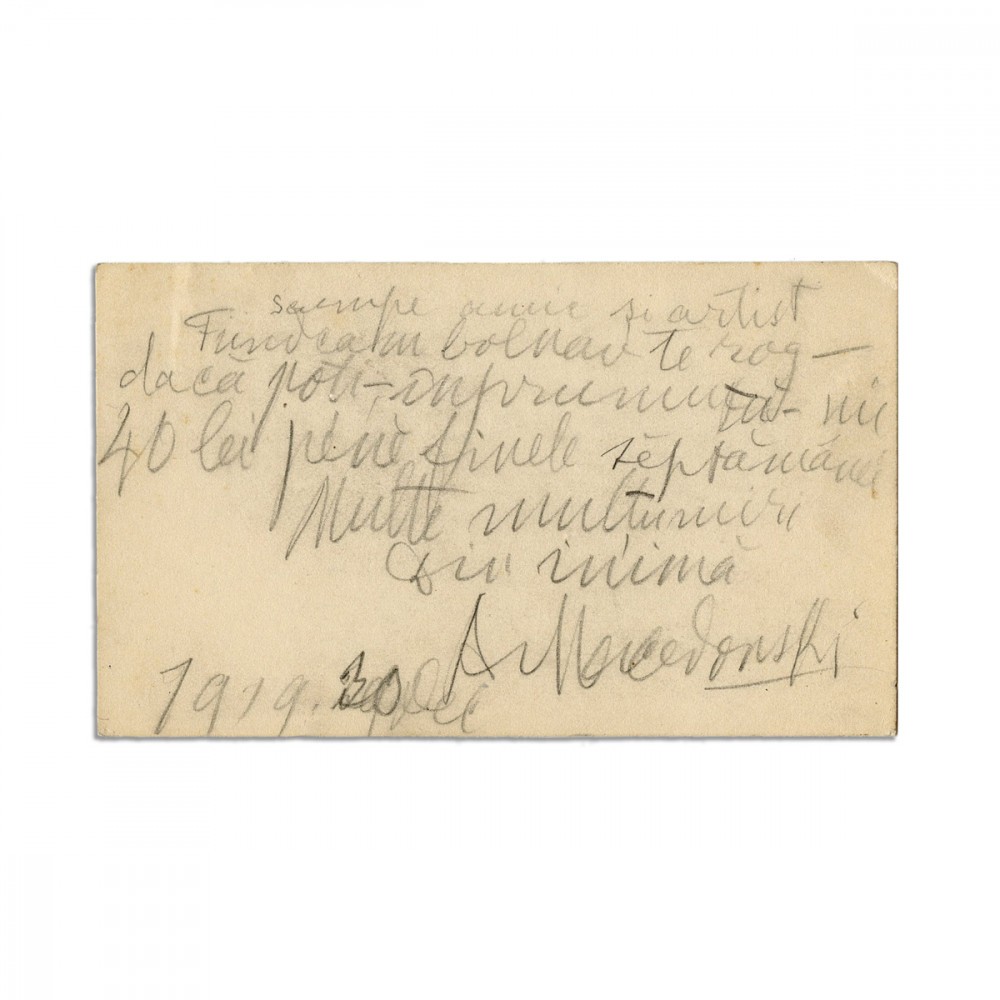 scumpe amic și artist
Fiindcă am bolnav te rog —
dacă poți — împrumută-mi
40 lei pénĕ finele séptămânei
Multe mulțumiri
din inimă
A Macedonski
1919. 30 Dec